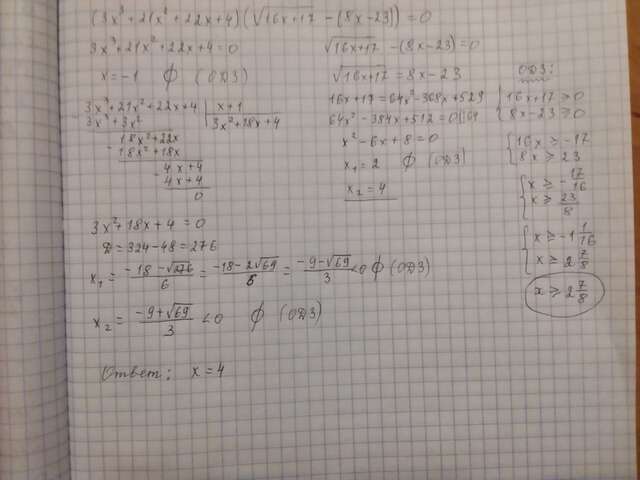 (3x³+21x²+22x+4)(√16x+17 - (8x-23)) = 0
3x³+21x²+22x+4=0
x=-1 ∅ (ОДЗ)
3x³+21x²+22x+4 | x+1
3x³+3x² | 3x²+18x+4
18x²+22x
- 18x²+18x
4x+4
- 4x+4
0
3x²+18x+4 = 0
D=324-48=276
x₁ = (-18-√276)/6 = (-18-2√69)/6 = (-9-√69)/3 <0 ∅ (ОДЗ)
x₂ = (-9+√69)/3 <0 ∅ (ОДЗ)
Ответ: x=4
√16x+17 - (8x-23)=0
√16x+17 = 8x-23
16x+17=64x²-368x+529
64x²-384x+512=0 |:64
x²-6x+8=0
x₁=2 ∅ (ОДЗ)
x₂=4
ОДЗ:
{16x+17≥0
8x-23≥0
{16x ≥-17
8x ≥ 23
{x ≥ -17/16
x ≥ 23/8
{x ≥ -1 1/16
x ≥ 2 7/8
x ≥ 2 7/8